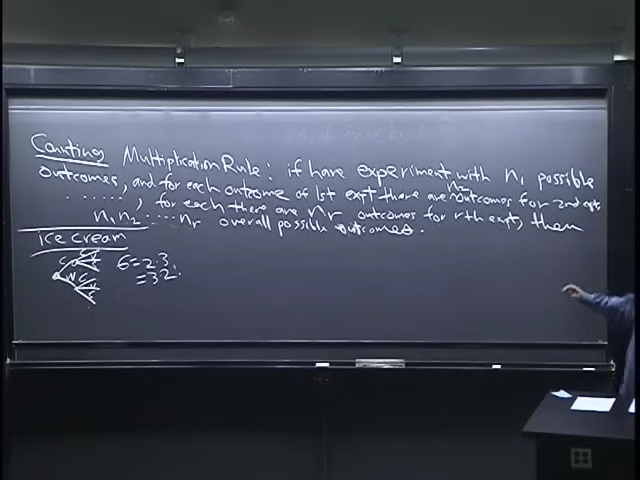 Counting Multiplication Rule: if have experiment with n1 possible
outcomes, and for each outcome of 1st expt there are n2 outcomes for 2nd expt,
......, for each there are nr outcomes for rth expt, then
n1 n2 .... nr overall possible outcomes.
ice cream
6=2·3
=3·2